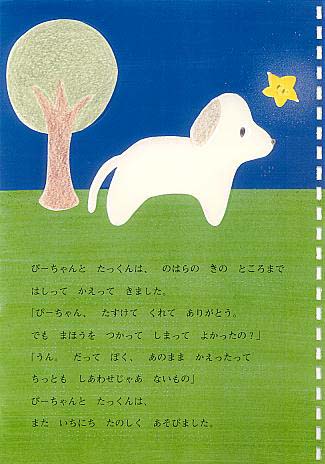 ぴーちゃんと　たっくんは、　のはらの　きの　ところまで
はしって　かえって　きました。
「ぴーちゃん、　たすけて　くれて　ありがとう。
でも　まほうを　つかって　しまって　よかったの？」
「うん。　だって　ぼく、　あのまま　かえったって
ちっとも　しあわせじゃあ　ないもの」
ぴーちゃんと　たっくんは、
また　いちにち　たのしく　あそびました。